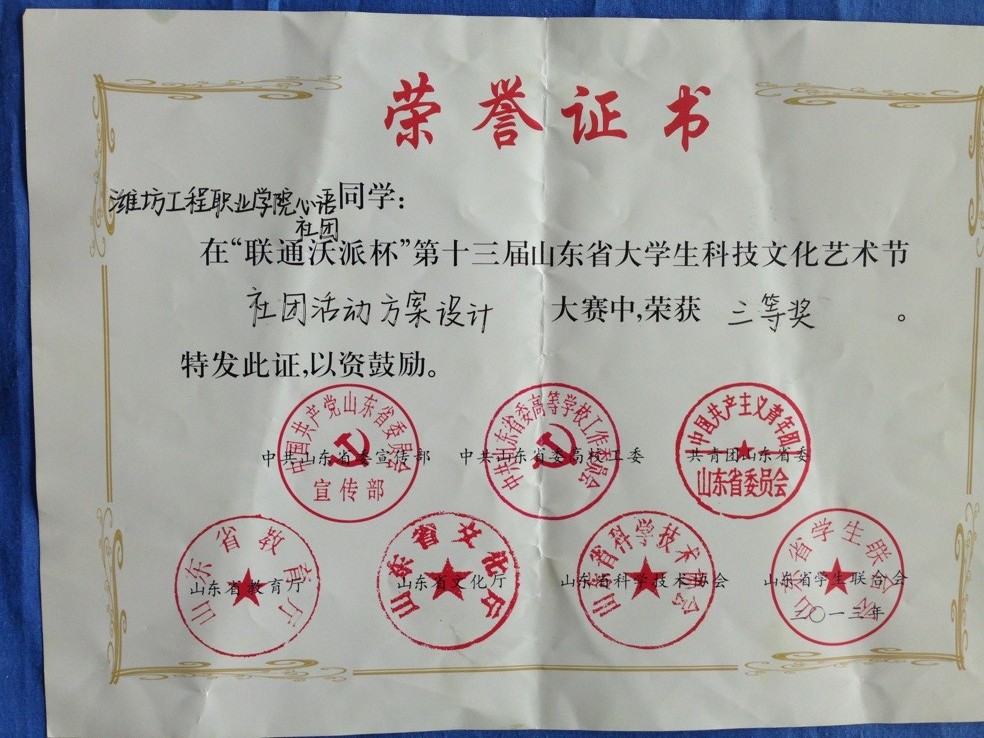 荣誉证书
潍坊工程职业学院心语社团同学：
在“联通沃派杯”第十三届山东省大学生科技文化艺术节
社团活动方案设计 大赛中，荣获 三等奖 。
特发此证，以资鼓励。
中国共产党山东省委员会
宣传部
中共山东省委宣传部
中共山东省委高等学校工作委员会
中共山东省委高校工委
中国共产主义青年团
山东省委员会
共青团山东省委
山东省教育厅
山东省教育厅
山东省文化厅
山东省文化厅
山东省科学技术协会
山东省科学技术协会
山东省学生联合会
山东省学生联合会
二〇一三年